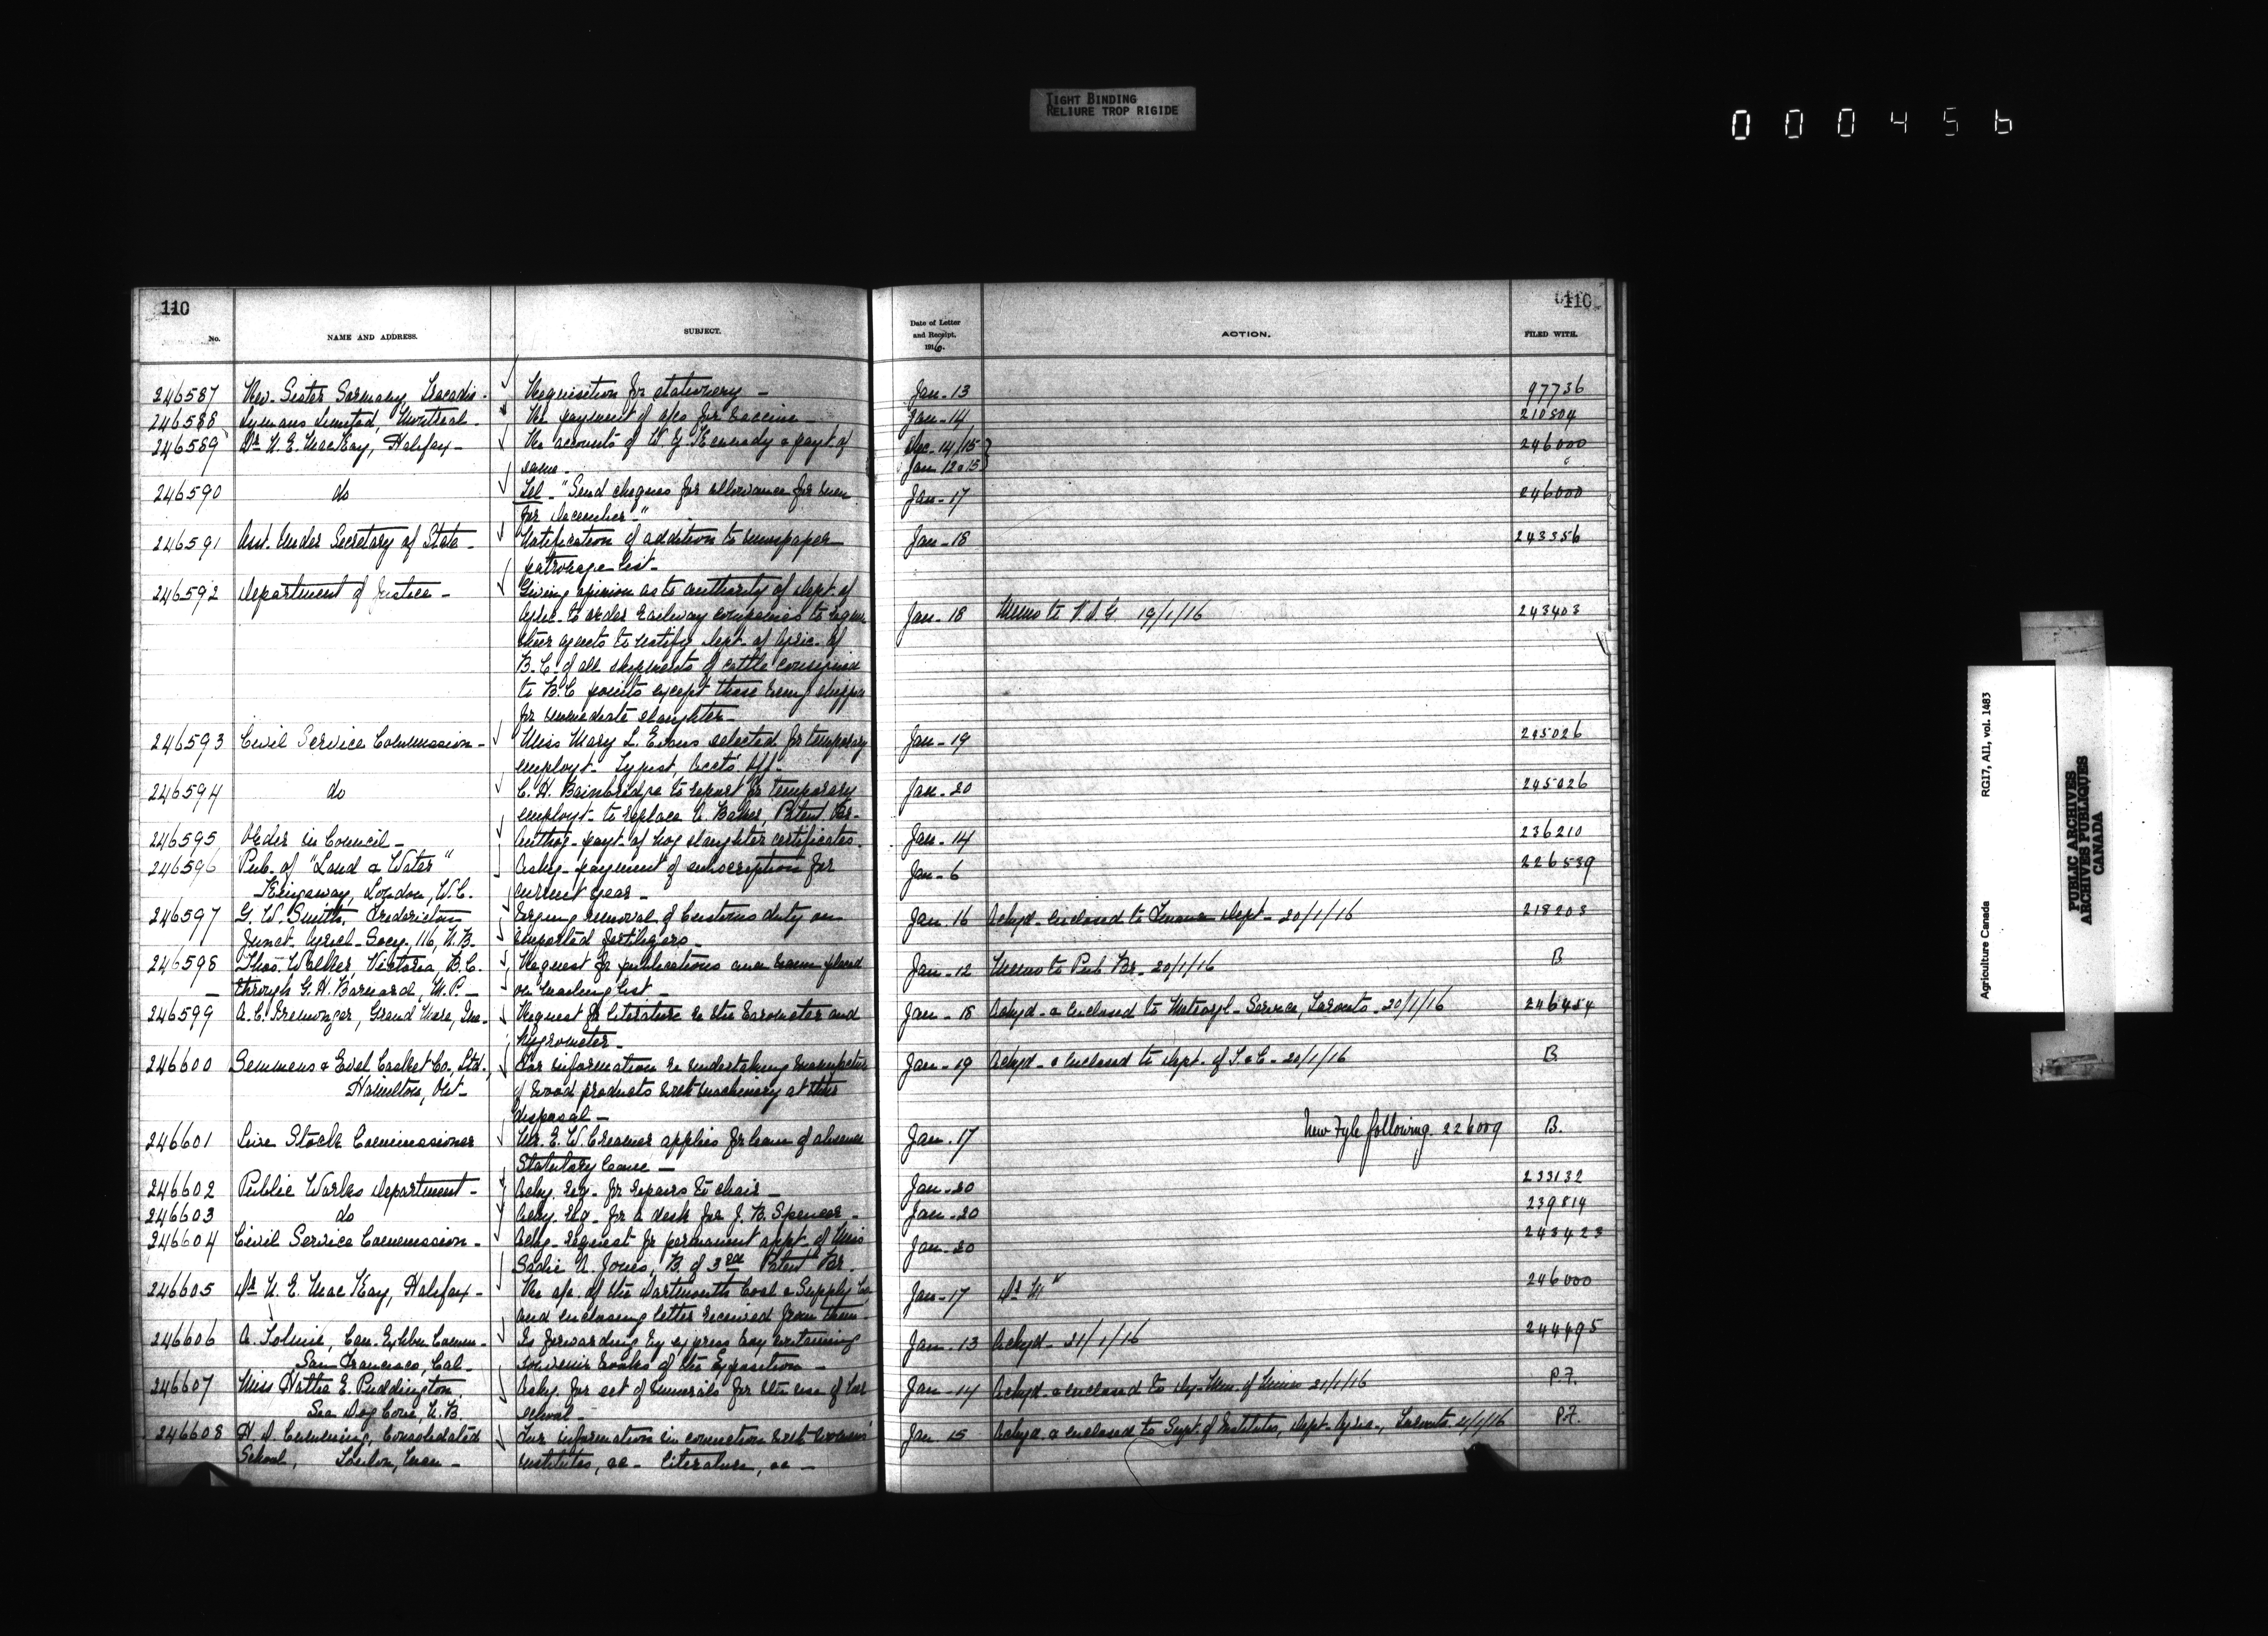 TIGHT BINDING
RELIURE TROP RIGIDE
000456
110
No. NAME AND ADDRESS. SUBJECT.
Date of Letter and Receipt. 1916. ACTION. FILED WITH.
110
246587 Rev. Sister Sormany, Tracadie. Requisition for stationery - Jan-13 97736
246588 Lymans Limited, Montreal. Re payment of a/cs for vaccine - Jan-14 210804
246589 Dr N. E. MacKay, Halifax- Re accounts of W. J. Kennedy & payt of Dec-14/15 246000
same- Jan 12 & 15
246590 do Tel-"Send cheques for allowance for men Jan-17 246000
for December-"
246591 Asst. Under Secretary of State- Notification of addition to newspaper Jan-18 243356
patronage list-
246592 Department of Justice- Giving opinion as to authority of Dept. of
Agric- to order Railway companies to Jan-18 Memo to V.D.G. 19/1/16 243403
their agents to notify Dept- of Agric- of
B.C. of all shipments of cattle consigned
to B.C points except those being
for immediate slaughter-
246593 Civil Service Commission- Miss Mary L. Evans selected for temporary Jan-19 245026
employt- Typist, Accts. Off-
246594 do C. H. Bainbridge to report for temporary Jan-20 245026
employt- to replace A. Baker, Patent Br-
246595 Order in Council- Authog- payt- of hog slaughter certificates. Jan-14 236210
246596 Pub. of "Land & Water" Askg- payment of subscription for Jan-6 226539
Kingsway, London, W.C. current year-
246597 G. W. Smith, Fredericton Urging removal of Customs duty on Jan-16 Ackgd- enclosed to Finance Dept- 20/1/16 218203
Junct- Agricl- Socy. 116, N.B. imported fertilizers-
246598 Thos. Walker, Victoria, B.C. Request for publications and name placed Jan-12 Memo to Pub Br- 20/1/16 B
- through G. H. Barnard, M.P.- on mailing list-
246599 A. C. Grand Mere, Que- Request for literature re the barometer and Jan-18 Ackgd- & enclosed to Metrogl- Service, Toronto- 20/1/16 246454
hygrometer-
246600 Semmens & Evel Casket Co., Ltd., For information re undertaking manufacture Jan-19 Ackgd- & enclosed to Dept. of T. & C- 20/1/16 B.
Hamilton, Ont- of wood products with machinery at their
disposal-
246601 Live Stock Commissioner Mr. E. W. Creamer applies for leave of absence Jan-17 New Fyle following. 226009 B.
Statutory leave-
246602 Public Works Department- Ackg. req- for repairs to chair- Jan-20 233132
246603 do Ackg. req- for a desk for J. B. Spencer- Jan-20 239814
246604 Civil Service Commission- Ackg- request for permanent appt- of Miss Jan-20 243423
Sadie N. Jones, B. of 3rd Patent Br.
246605 Dr N. E. MacKay, Halifax- Re a/c. of the Dartmouth Coal & Supply Co Jan-17 Dr M 246000
and enclosing letter received from them-
246606 A. Tolmie, Can. Exhbn Comm- Is forwarding by express box containing Jan-13 Ackgd- 21/1/16 244495
San Francisco, Cal- souvenir books of the Exposition-
246607 Miss Hattie E. Puddington, Askg. for set of minerals for the use of her Jan-14 Ackgd- & enclosed to Dy-Min. of Mines 21/1/16 P.F.
Sea Dog Cove, N.B. school-
246608 H. D. Cumming, Consolidated For information in connection with women's Jan 15 Ackgd & enclosed to Supt. of Institutes, Dept- Agric-, Toronto- 21/1/16 P.F.
School, Teulon, Man- institutes, &c- literature, &c-
Agriculture Canada RG17, AII, vol. 1483
PUBLIC ARCHIVES
ARCHIVES PUBLIQUES
CANADA